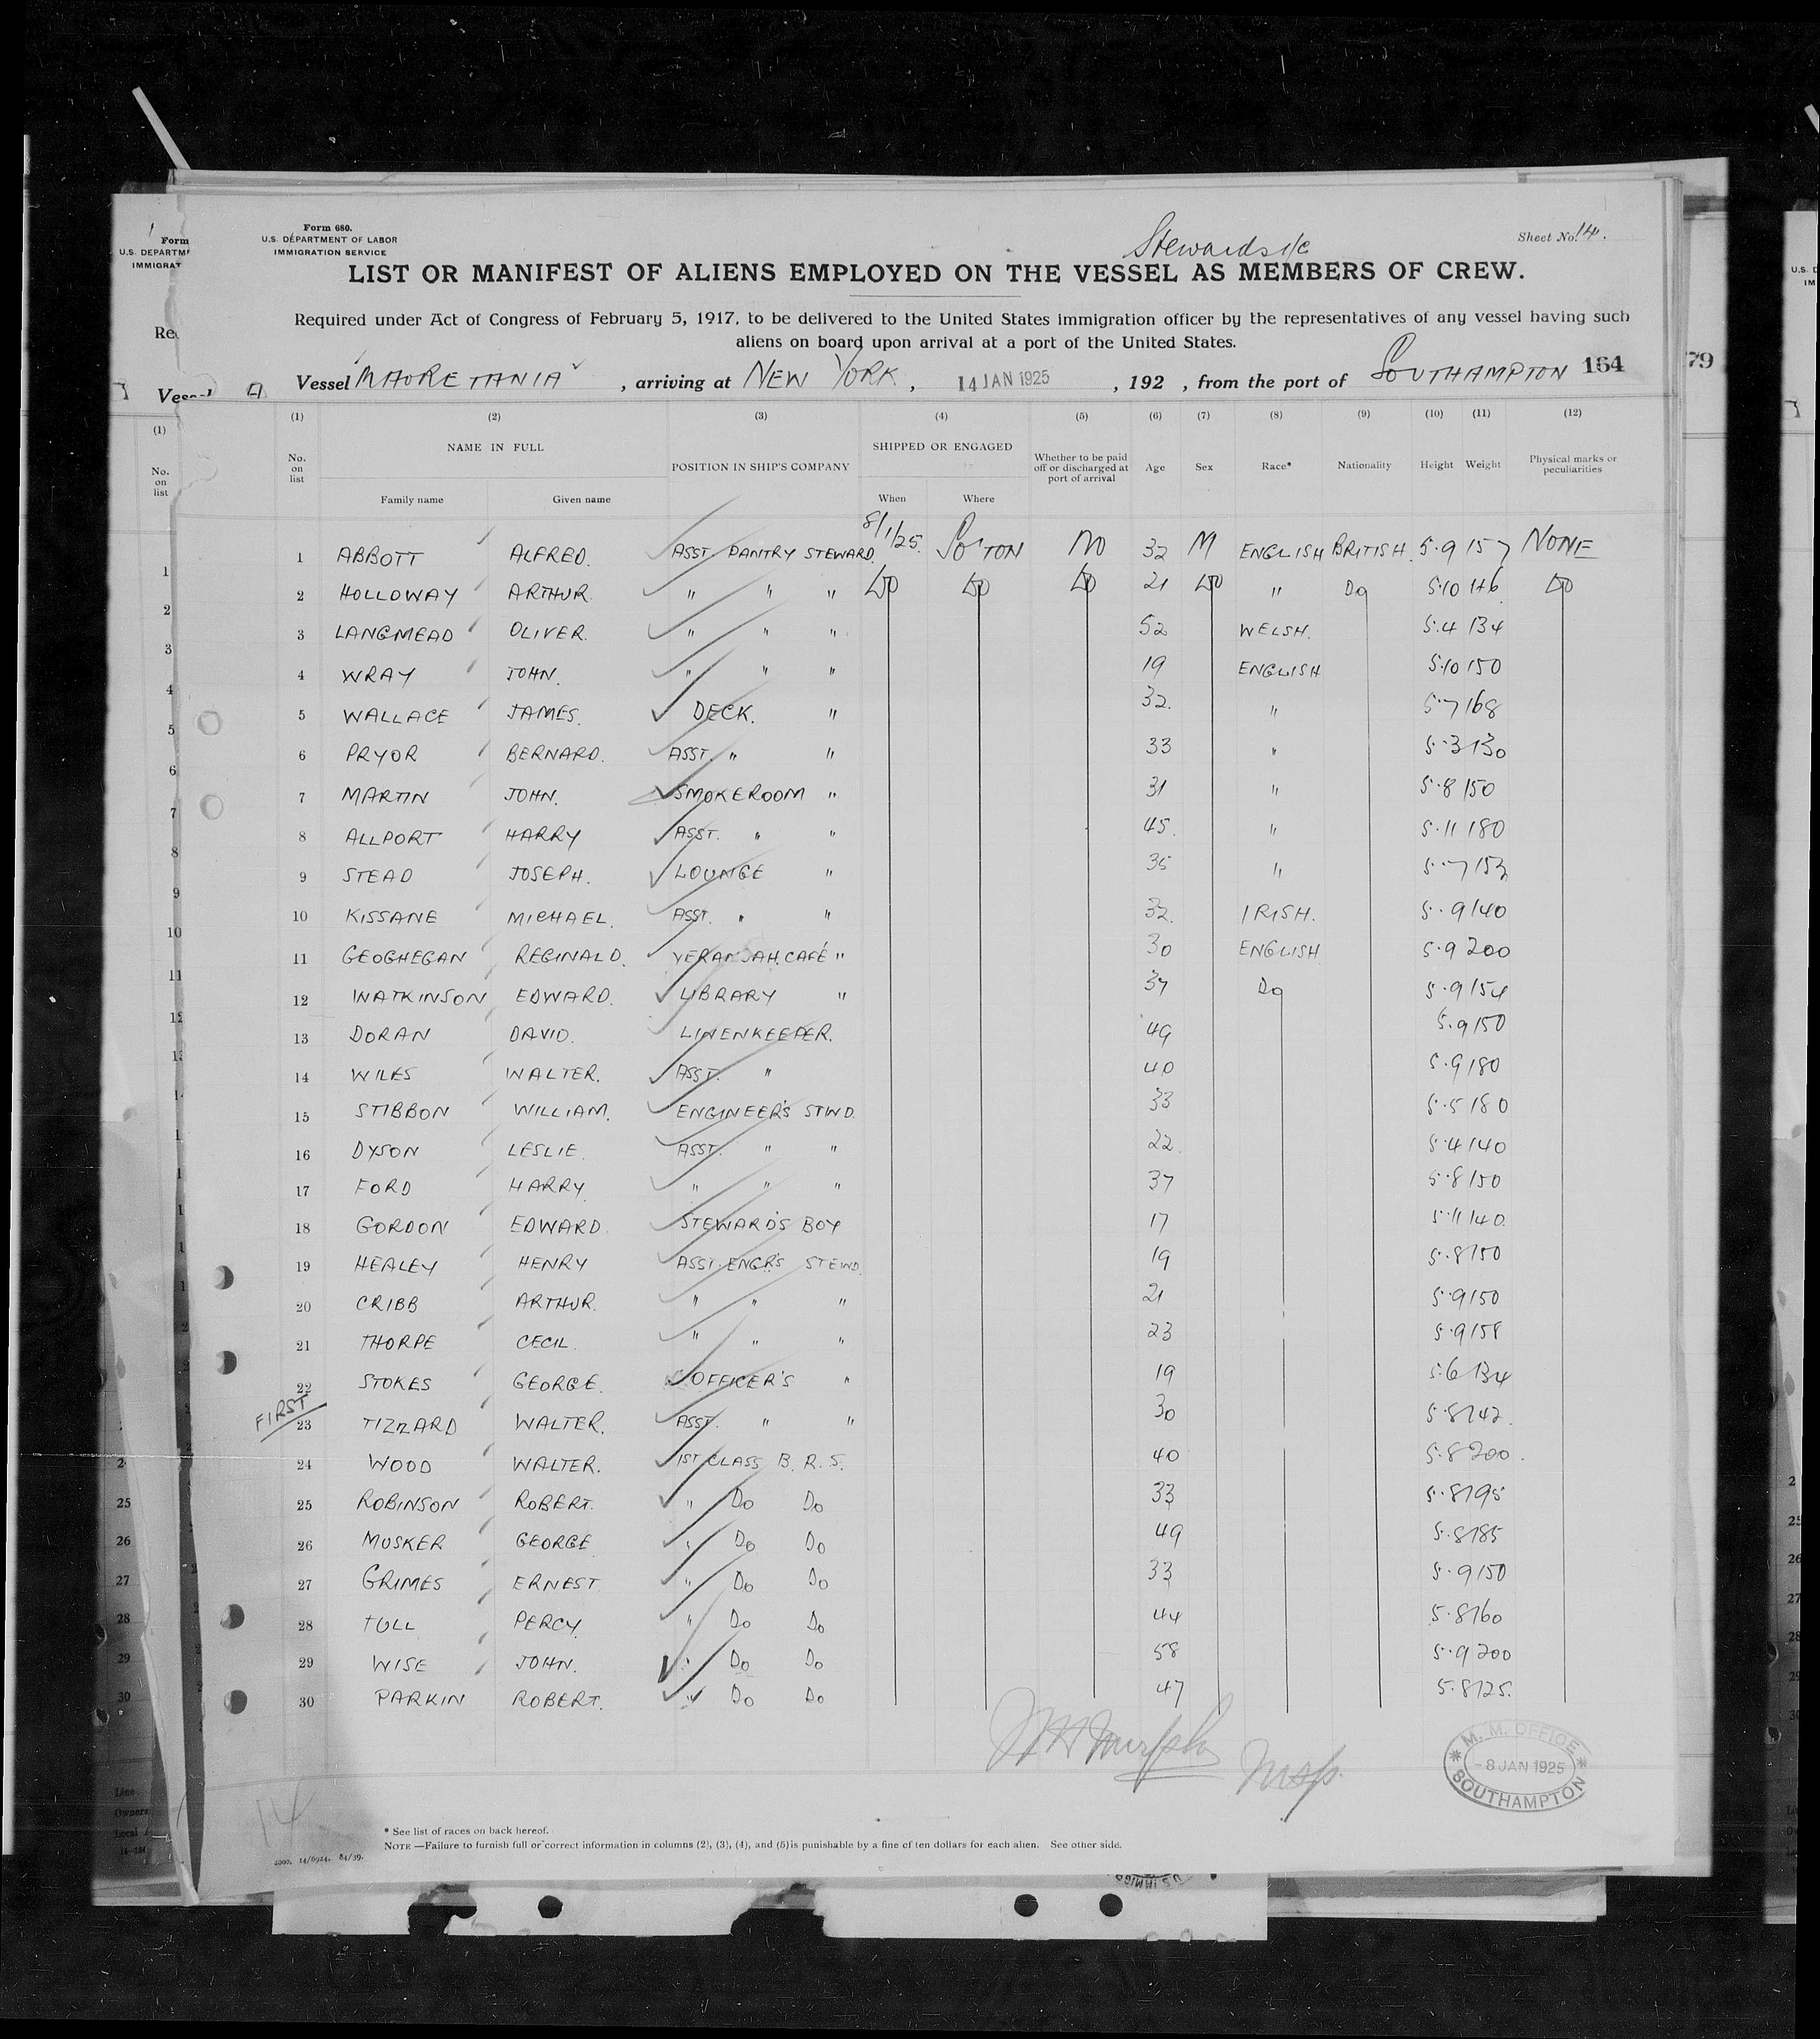 Form 680.
U.S. DEPARTMENT OF LABOR
IMMIGRATION SERVICE
Stewards
Sheet No. 14.
LIST OR MANIFEST OF ALIENS EMPLOYED ON THE VESSEL AS MEMBERS OF CREW.
Required under Act of Congress of February 5, 1917, to be delivered to the United States immigration officer by the representatives of any vessel having such
aliens on board upon arrival at a port of the United States.
Vessel MAURETANIA, arriving at NEW YORK, 14 JAN 1925, 192 , from the port of SOUTHAMPTON 164
79
(1) (2) (3) (4) (5) (6) (7) (8) (9) (10) (11) (12)
No. on list NAME IN FULL POSITION IN SHIP'S COMPANY SHIPPED OR ENGAGED Whether to be paid off or discharged at port of arrival Age Sex Race* Nationality Height Weight Physical marks or peculiarities
Family name Given name When Where
1 ABBOTT ALFRED. ASST. PANTRY STEWARD. 8/1/25. SO'TON NO 32 M ENGLISH BRITISH. 5.9 157 NONE
2 HOLLOWAY ARTHUR. " " " DO DO DO 21 DO " DO 5.10 146 DO
3 LANGMEAD OLIVER. " " " 52 WELSH. 5.4 134
4 WRAY JOHN. " " " 19 ENGLISH 5.10 150
5 WALLACE JAMES. DECK. " 32. " 5.7 168
6 PRYOR BERNARD. ASST. " " 33 " 5.3 130
7 MARTIN JOHN. SMOKEROOM " 31 " 5.8 150
8 ALLPORT HARRY ASST. " " 45. " 5.11 180
9 STEAD JOSEPH. LOUNGE " 35 " 5.7 153
10 KISSANE MICHAEL. ASST. " " 32. IRISH. 5.9 140
11 GEOGHEGAN REGINALD. VERANDAH.CAFÉ " 30 ENGLISH 5.9 200
12 WATKINSON EDWARD. LIBRARY " 37 DO 5.9 154
13 DORAN DAVID. LINENKEEPER. 49 5.9 150
14 WILES WALTER. ASST. " 40 5.9 180
15 STIBBON WILLIAM. ENGINEER'S STWD. 33 5.5 180
16 DYSON LESLIE. ASST. " " 22. 5.4 140
17 FORD HARRY. " " " 37 5.8 150
18 GORDON EDWARD. STEWARD'S BOY 17 5.11 140.
19 HEALEY HENRY ASST. ENGR'S STEWD. 19 5.8 150
20 CRIBB ARTHUR. " " " 21 5.9 150
21 THORPE CECIL. " " " 23 5.9 158
22 STOKES GEORGE. OFFICER'S " 19 5.6 134
FIRST
23 TIZZARD WALTER. ASST. " " 30 5.8 142.
24 WOOD WALTER. 1ST CLASS B. R. S. 40 5.8 200.
25 ROBINSON ROBERT. " DO DO 33 5.8 195
26 MUSKER GEORGE " DO DO 49 5.8 185
27 GRIMES ERNEST. " DO DO 33 5.9 150
28 TULL PERCY. " DO DO 44 5.8 160
29 WISE JOHN. " DO DO 58 5.9 200
30 PARKIN ROBERT. " DO DO 47 5.8 125.
M. M. OFFICE
- 8 JAN 1925
SOUTHAMPTON
14
* See list of races on back hereof.
NOTE —Failure to furnish full or correct information in columns (2), (3), (4), and (5) is punishable by a fine of ten dollars for each alien. See other side.
2000. 14/6924. 84/39.